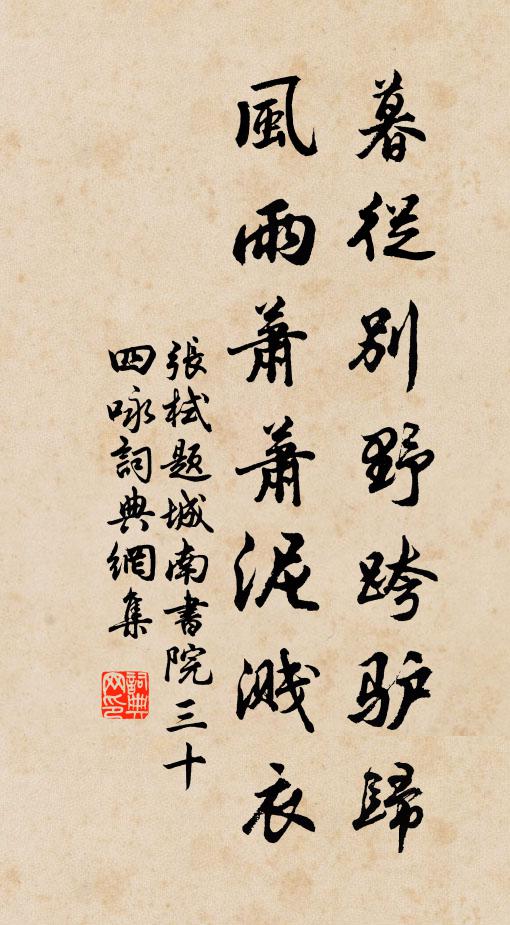 暮從别野跨驴歸
風雨蕭蕭泥濺衣
張栻题城南書院三十
四咏詞典網集
詞典
网印